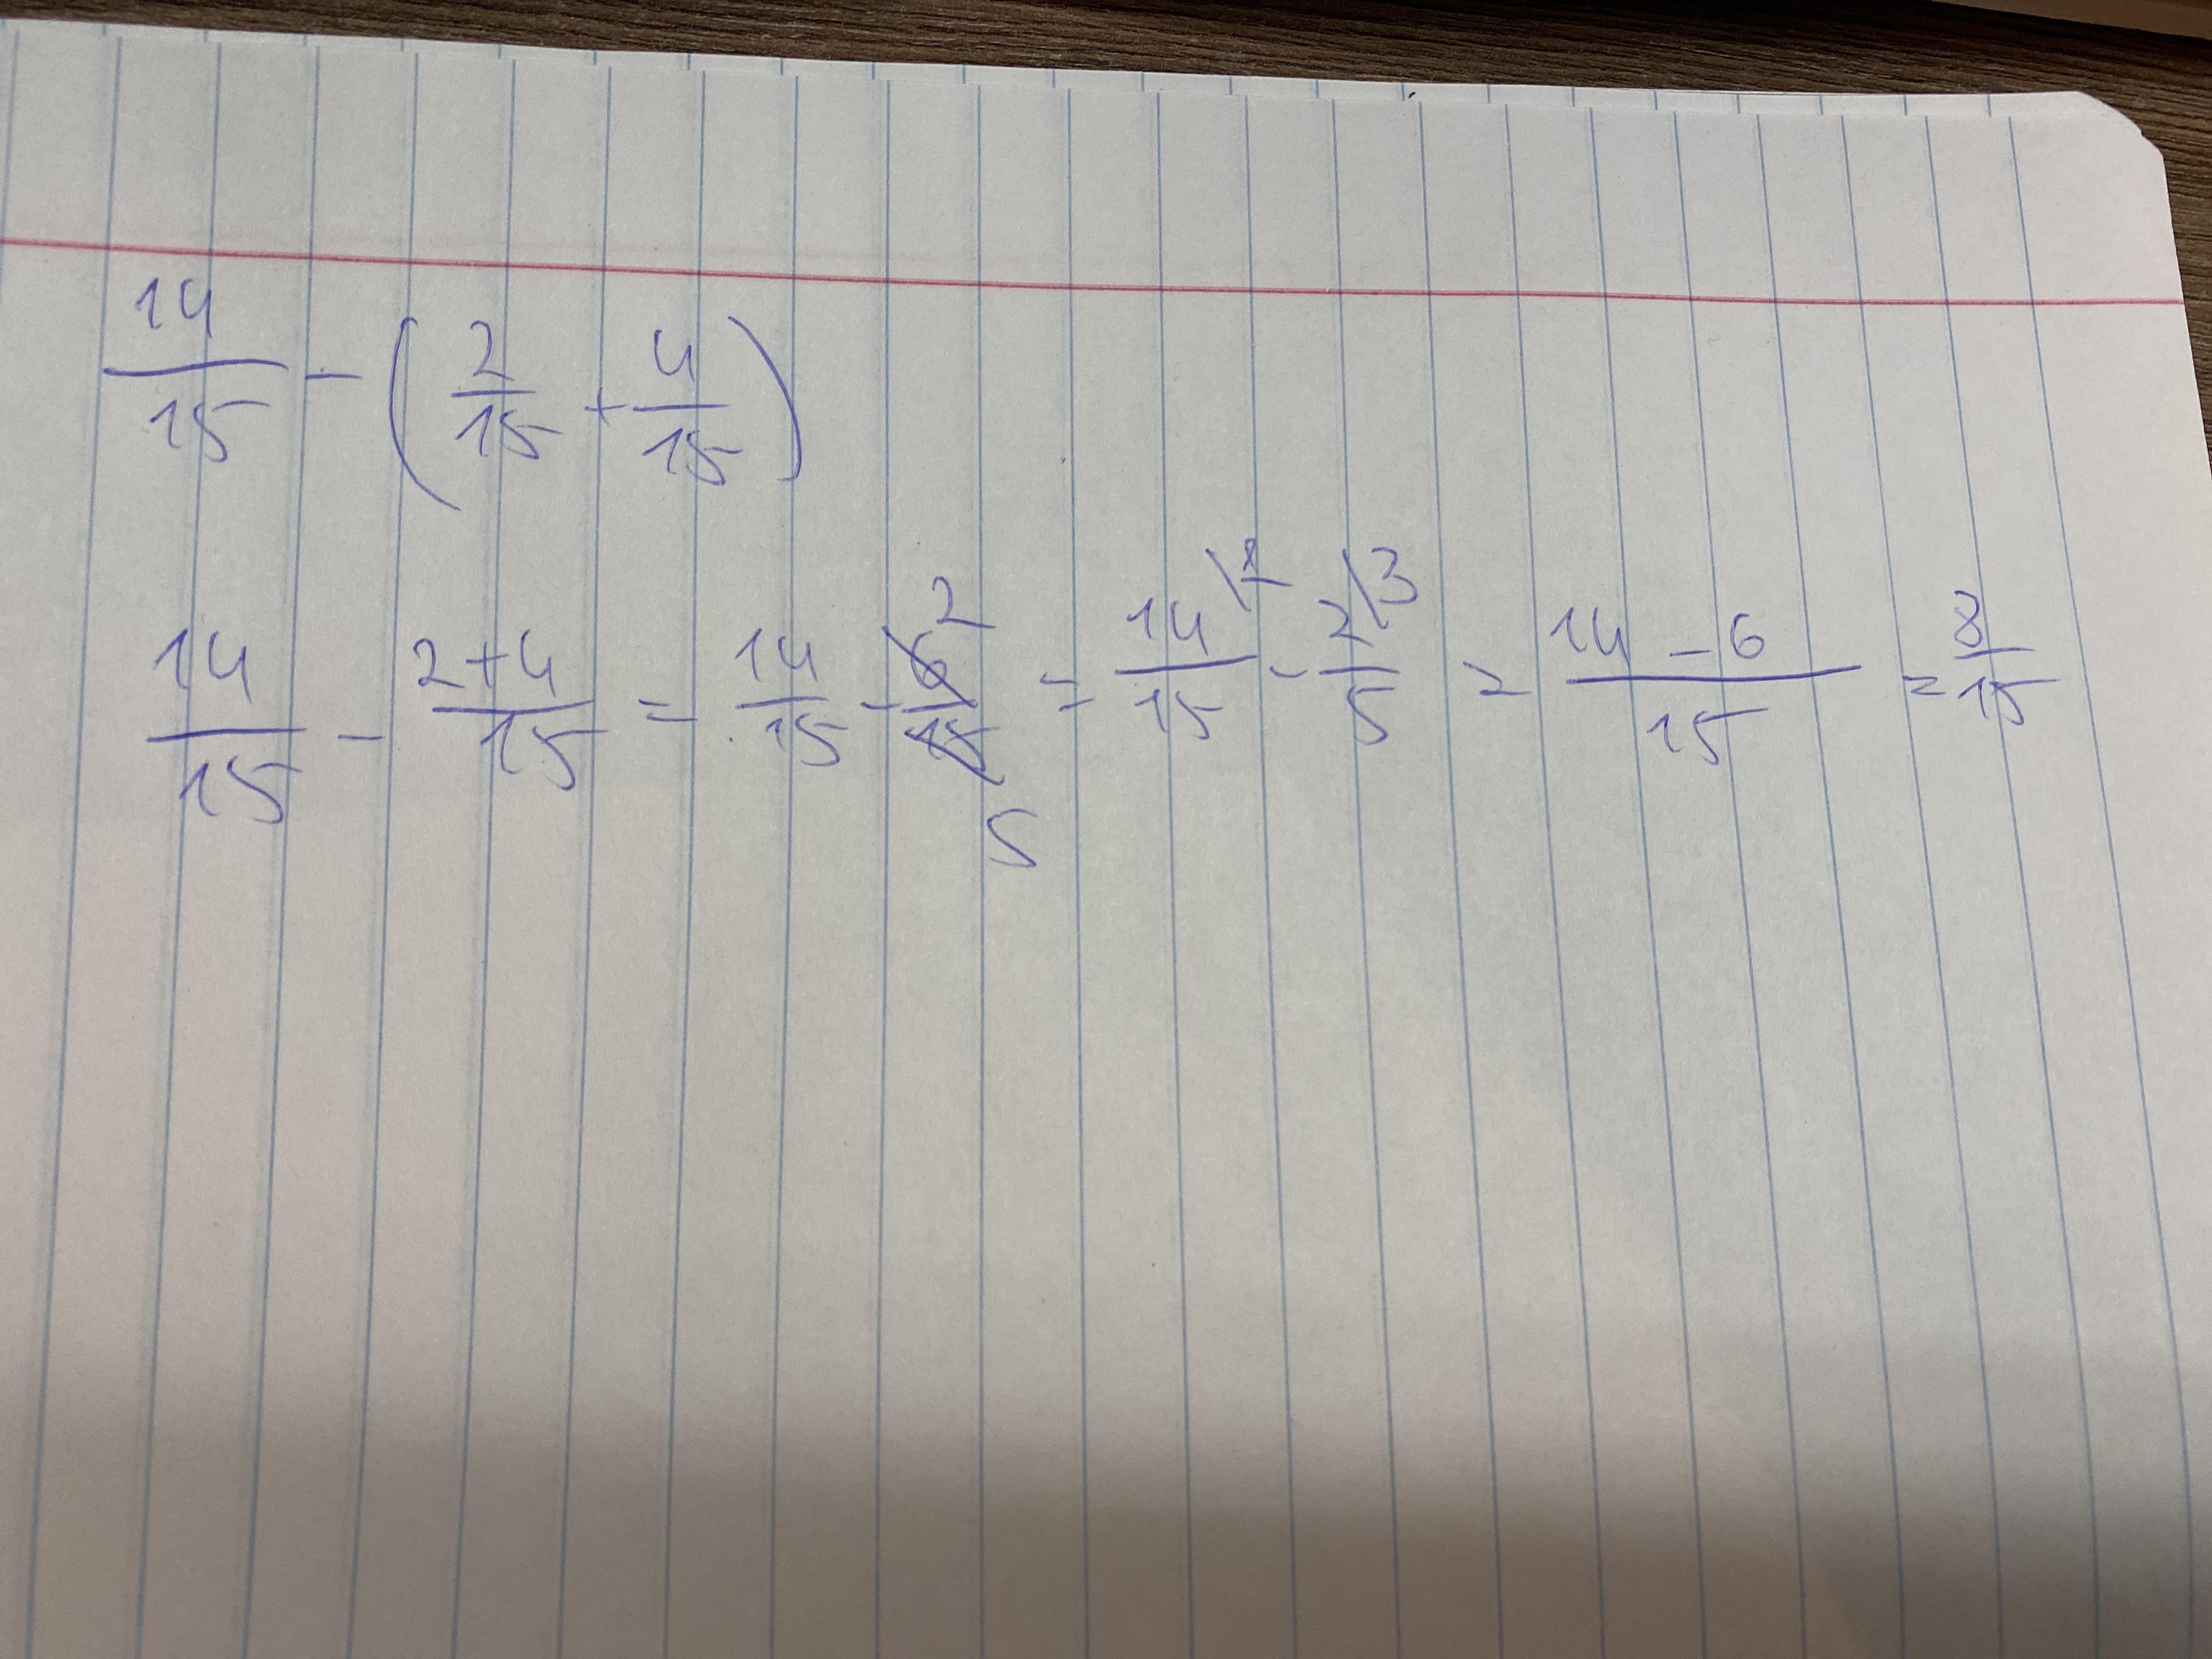 14/15 - (2/15 + 4/15)
14/15 - 2+4/15 = 14/15 - 6/15 2 5 = 14/15 \1 - 2/5 \3 = 14 - 6/15 = 8/15